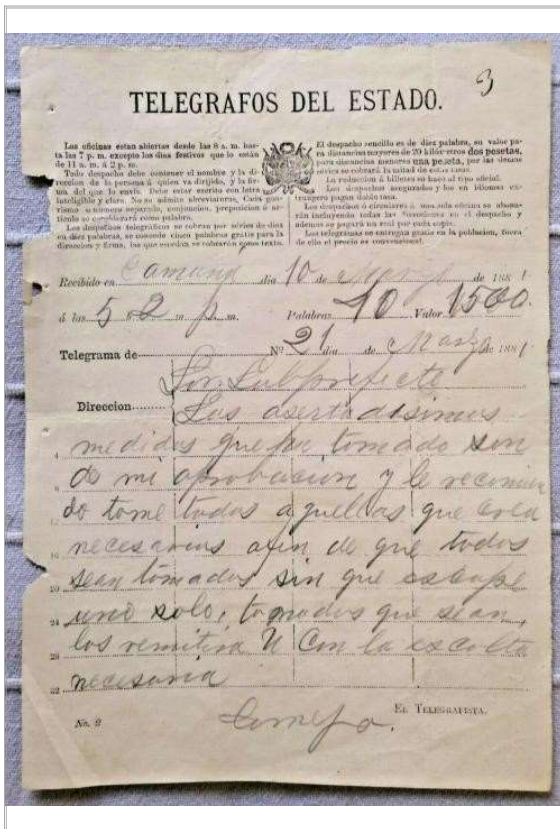 3
TELEGRAFOS DEL ESTADO.
Las oficinas estan abiertas desde las 8 a. m. has-
ta las 7 p. m. excepto los dias festivos que lo están
de 11 a. m. á 2 p. m.
Todo despacho debe contener el nombre y la di-
reccion de la persona á quien va dirijido, y la fir-
ma del que lo envia. Debe estar escrito con letra
inteligible y clara. No se admite abreviaturas. Cada gua-
rismo ó número separado, conjuncion, preposicion ó ar-
tículo se considerará como palabra.
Los despachos telegráficos se cobran por séries de diez
en diez palabras, se concede cinco palabras gratis para la
direccion y firma, las que excedan se cobrarán como texto.
El despacho sencillo es de diez palabras, su valor pa-
ra distancias mayores de 20 kilómetros dos pesetas,
para distancias menores una peseta, por las demas
séries se cobrará la mitad de estas tasas.
La reduccion á billetes se hace al tipo oficial.
Los despachos asegurados y los en idiomas ex-
trangeros pagan doble tasa.
Los despachos ó circulares á una sola oficina se
incluyendo todas las direcciones en el despacho y
ademas se pagará un real por cada copia.
Los telegramas se entregan gratis en la poblacion, fuera
de ella el precio es convencional.
Recibido en Camaná dia 10 de de 1881
á las 5 2 m p. m. Palabras 40 Valor 1500
Telegrama de Nº 21 dia de Marzo de 1881
Sor. Subprefecto
Direccion Las asertadisimas
medidas que ha tomado son
de mi aprobacion y le recomien
do tome todas aquellas que crea
necesarias afin de que todos
sean tomados sin que escape
uno solo, tomados que sean,
los remitira U con la escolta
necesaria
EL TELEGRAFISTA.
No. 2